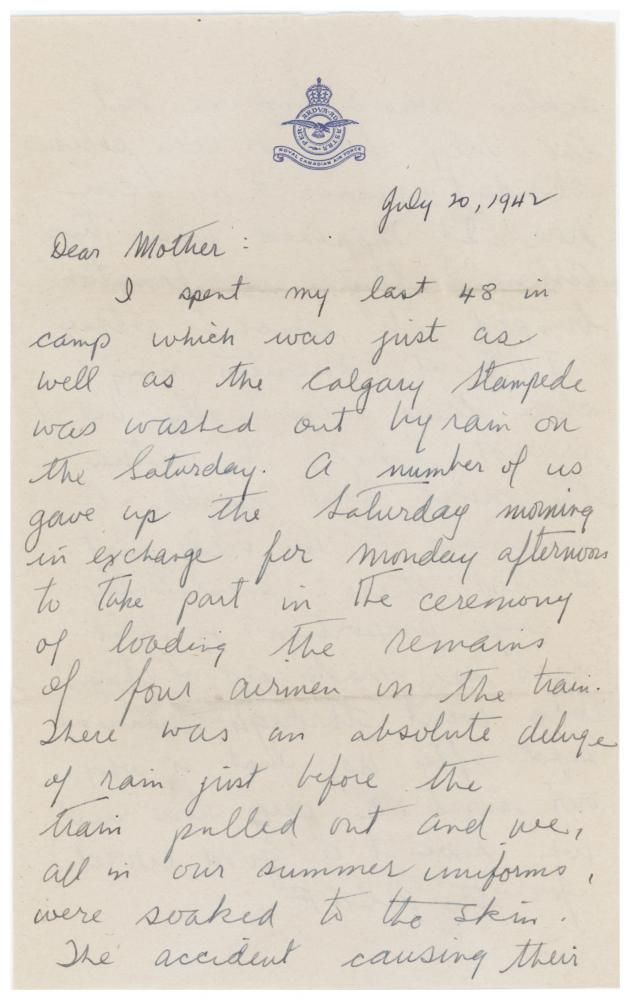 PER · ARDVA · AD ASTRA
ROYAL CANADIAN AIR FORCE
July 20, 1942
Dear Mother:
I spent my last 48 in
camp which was just as
well as the Calgary Stampede
was washed out by rain on
the Saturday. A number of us
gave up the Saturday morning
in exchange for Monday afternoon
to take part in the ceremony
of loading the remains
of four airmen on the train.
There was an absolute deluge
of rain just before the
train pulled out and we,
all in our summer uniforms,
were soaked to the skin.
The accident causing their